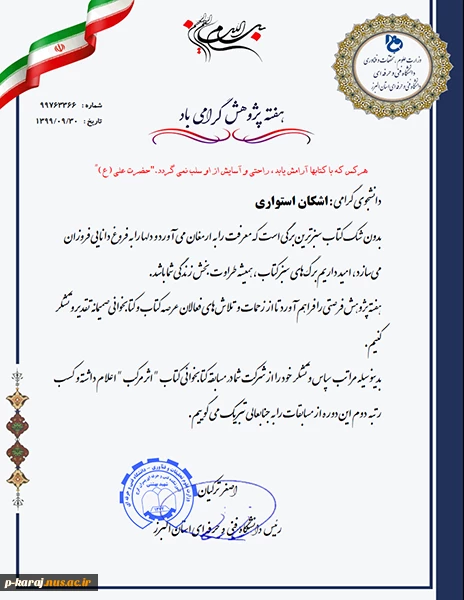 بسم الله الرحمن الرحیم
وزارت علوم، تحقیقات و فناوری
دانشگاه فنی و حرفه ای
دانشگاه فنی و حرفه ای استان البرز
شماره : ۹۹۷۶۳۳۶۶
تاریخ : ۱۳۹۹/۰۹/۳۰
هفته پژوهش گرامی باد
هر کس که با کتابها آرامش یابد ، راحتی و آسایش از او سلب نمی گردد."حضرت علی (ع)"
دانشجوی گرامی: اشکان استواری
بدون شک کتاب سبزترین برگی است که معرفت را به ارمغان می آورد و دلها را به فروغ دانایی فروزان
می سازد، امید داریم برگ های سبز کتاب ، همیشه طراوت بخش زندگی شما باشد.
هفته پژوهش فرصتی را فراهم آورد تا از زحمات و تلاش های فعالان عرصه کتاب و کتابخوانی صمیمانه تقدیر و تشکر
کنیم.
بدینوسیله مراتب سپاس و تشکر خود را از شرکت شما در مسابقه کتابخوانی کتاب " اثر مرکب " اعلام داشته و کسب
رتبه دوم این دوره از مسابقات را به جنابعالی تبریک می گوییم.
اصغر ترکیان
رئیس دانشگاه فنی و حرفه ای استان البرز
p-karaj.nus.ac.ir